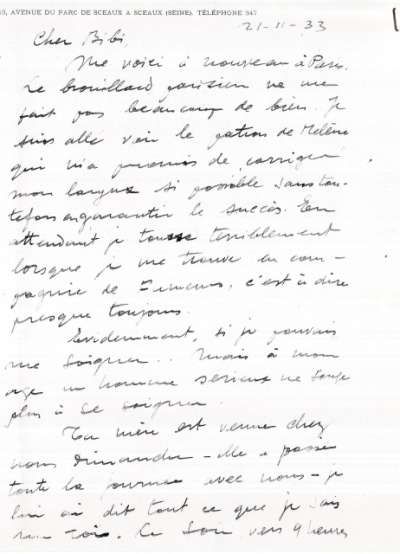 , AVENUE DU PARC DE SCEAUX A SCEAUX (SEINE). TÉLÉPHONE 947
21-11-33
Cher Bibi,
Me voici à nouveau à Paris.
Le brouillard parisien ne me
fait pas beaucoup de bien. Je
suis allé voir le patron de Mélène
qui m'a promis de corriger
mon larynx si possible sans tou-
tefois en garantir le succès. En
attendant je tousse terriblement
lorsque je me trouve en com-
pagnie de fumeurs, c'est à dire
presque toujours.
Evidemment, si je pouvais
me soigner.. Mais à mon
age un homme serieux ne songe
plus à se soigner.
Ta mère est venue chez
nous dimanche - elle a passé
toute la journée avec nous - je
lui ai dit tout ce que je sais
sur toi. Ce soir vers 9 heures